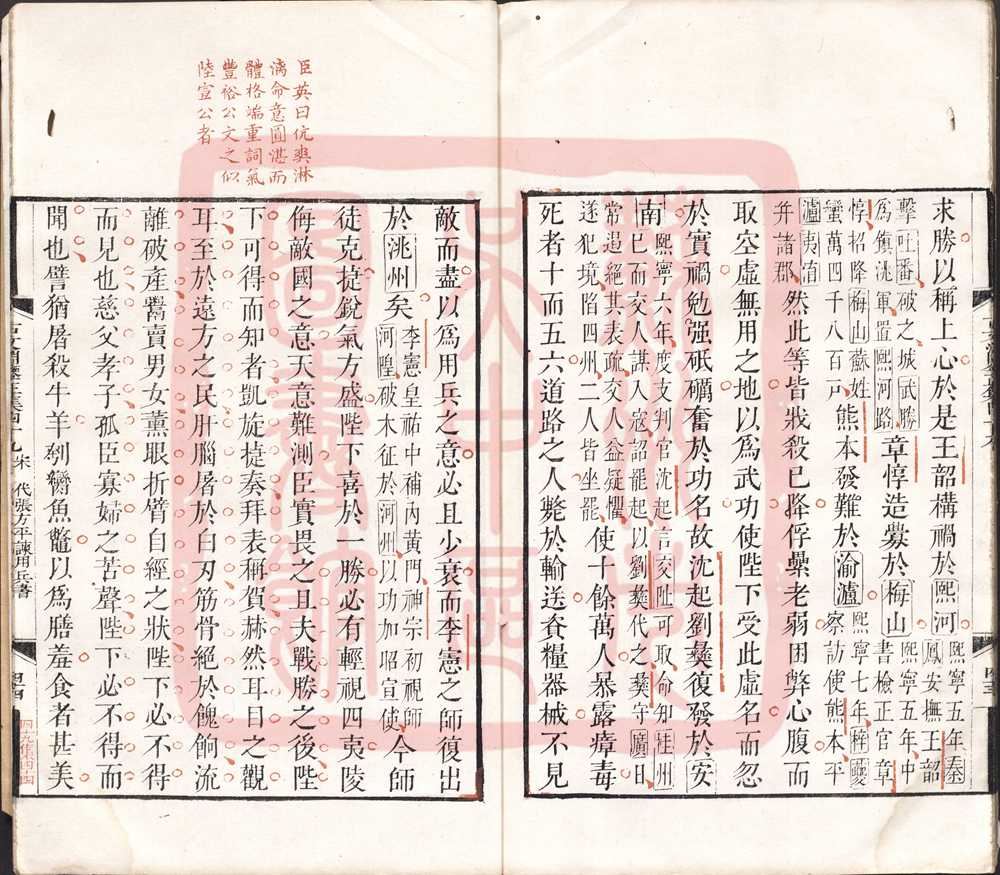 求勝以稱上心於是王韶構禍於熙河熙寧五年秦鳳安撫王韶
擊吐番破之城武勝為鎮洮軍置熙河路章惇造釁於梅山熙寧五年中書檢正官章
惇招降梅山蘇姓蠻萬四千八百戶熊本發難於渝瀘熙寧七年梓夔察訪使熊本平
瀘夷淯井諸郡然此等皆戕殺已降俘纍老弱困弊心腹而
取空虛無用之地以為武功使陛下受此虛名而忽
於實禍勉强砥礪奮於功名故沈起劉彝復發於安
南熙寧六年度支判官沈起言交阯可取命知桂州巳而交人謀入寇詔罷起以劉彝代之彝守廣日
常遏絕其表疏交人益疑懼遂犯境陷四州二人皆坐罷使十餘萬人暴露瘴毒
死者十而五六道路之人斃於輸送資糧器械不見
臣英曰伉爽淋
漓命意圓湛而
體格端重詞氣
豐裕公文之似
陸宣公者
敵而盡以為用兵之意必且少衰而李憲之師復出
於洮州矣李憲皇祐中補內黃門神宗初視師河隍破木征於河州以功加昭宣使今師
徒克捷銳氣方盛陛下喜於一勝必有輕視四夷陵
侮敵國之意天意難測臣實畏之且夫戰勝之後陛
下可得而知者凱旋捷奏拜表稱賀赫然耳目之觀
耳至於遠方之民肝腦屠於白刃筋骨絕於餽餉流
離破產鬻賣男女薰眼折臂自經之狀陛下必不得
而見也慈父孝子孤臣寡婦之苦聲陛下必不得而
聞也譬猶屠殺牛羊刳臠魚鼈以為膳羞食者甚美
宋 代張方平諫用兵書